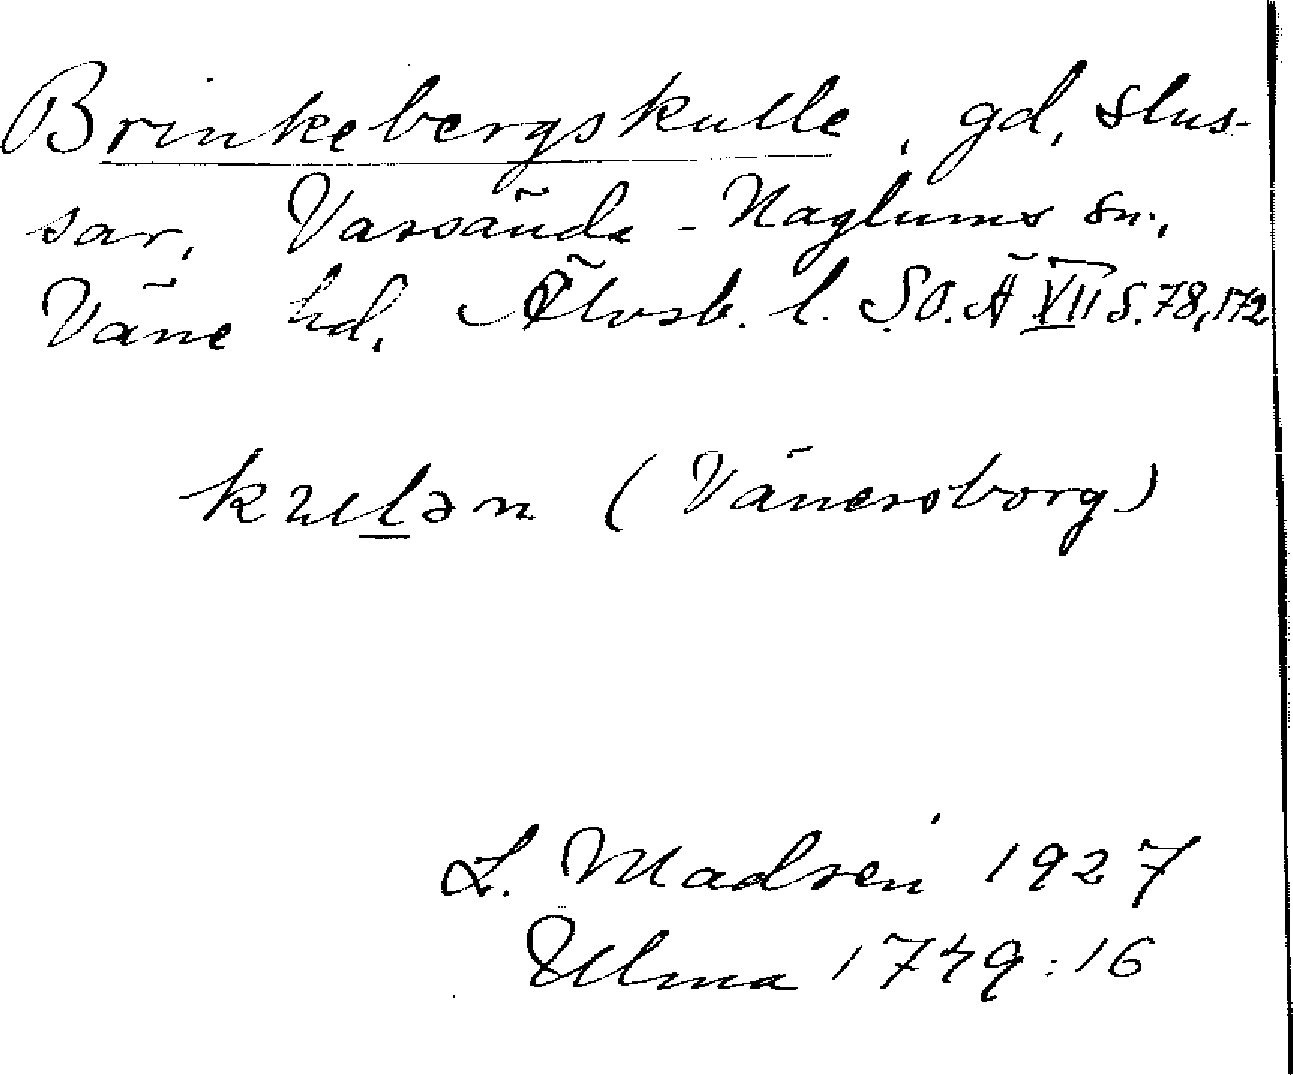 Brinkebergskulle, gd, slus-
sar, Vassända-Naglums sn.,
Väne hd, Älvsb. l. S.O.Ä XII S. 78, 172
kulən (Vänersborg)
L. Madsén 1927
Ulma 1749:16